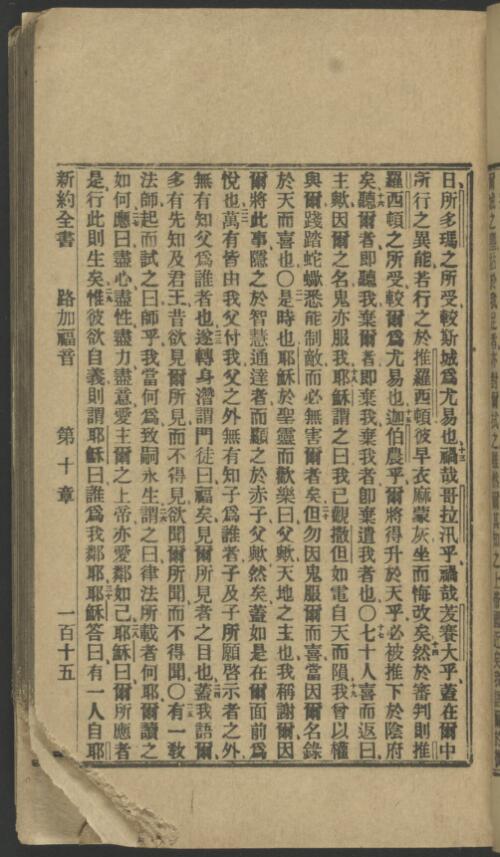 日所多瑪之所受較斯城爲尤易也十三禍哉哥拉汛乎禍哉茇賽大乎蓋在爾中
所行之異能若行之於推羅西頓彼早衣麻蒙灰坐而悔改矣十四然於審判則推
羅西頓之所受較爾爲尤易也十五迦伯農乎爾將得升於天乎必被推下於陰府
矣十六聽爾者即聽我棄爾者即棄我棄我者卽棄遣我者也〇十七七十人喜而返曰
主歟因爾之名鬼亦服我十八耶穌謂之曰我已觀撒但如電自天而隕十九我曾以權
與爾踐踏蛇蠍悉能制敵而必無害爾者矣二十但勿因鬼服爾而喜當因爾名錄
於天而喜也〇二一是時也耶穌於聖靈而歡樂曰父歟天地之主也我稱謝爾因
爾將此事隱之於智慧通達者而顯之於赤子父歟然矣蓋如是在爾面前爲
悅也二二萬有皆由我父付我父之外無有知子爲誰者子及子所願啓示者之外
無有知父爲誰者也二三遂轉身潛謂門徒曰福矣見爾所見者之目也二四蓋我語爾
多有先知及君王昔欲見爾所見而不得見欲聞爾所聞而不得聞〇二五有一敎
法師起而試之曰師乎我當何爲致嗣永生二六謂之曰律法所載者何耶爾讀之
如何二七應曰盡心盡性盡力盡意愛主爾之上帝亦愛鄰如己二八耶穌曰爾所應者
是行此則生矣二九惟彼欲自義則謂耶穌曰誰爲我鄰耶三十耶穌答曰有一人自耶
新約全書 路加福音 第十章 一百十五